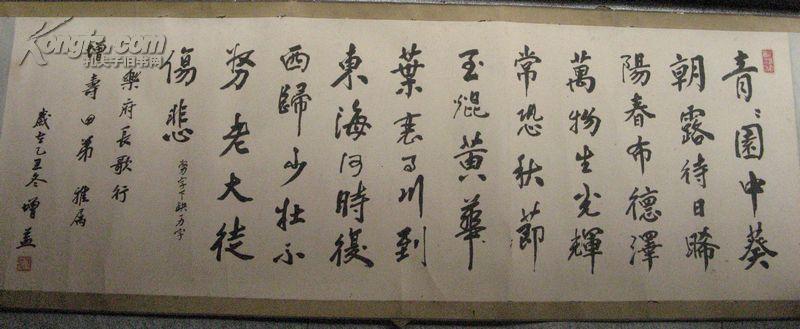 青〻園中葵
朝露待日晞
陽春布德澤
萬物生光輝
常恐秋節
至焜黃華
葉衰百川到
東海何時復
西歸少壯不
努老大徒
傷悲
努字下缺力字
樂府長歌行
增壽弟雅屬
歲在乙丑冬 增益
Kongfz.com
孔夫子旧书网